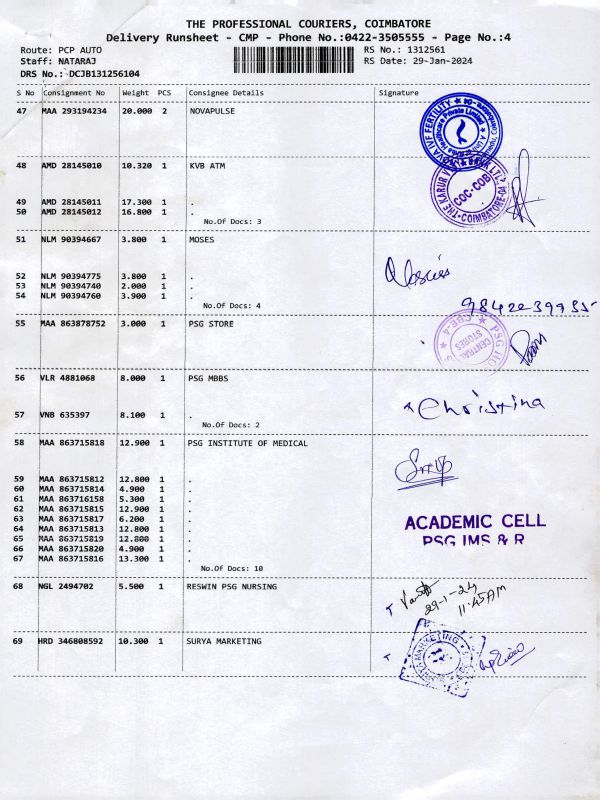 THE PROFESSIONAL COURIERS, COIMBATORE
Delivery Runsheet - CMP - Phone No.:0422-3505555 - Page No.:4
Route: PCP AUTO RS No.: 1312561
Staff: NATARAJ RS Date: 29-Jan-2024
DRS No.: DCJB131256104
S No Consignment No Weight PCS Consignee Details Signature
47 MAA 293194234 20.000 2 NOVAPULSE
IVF FERTILITY
Healthcare Private Limited
48 AMD 28145010 10.320 1 KVB ATM
THE KARUR
COC-COB
COIMBATORE
49 AMD 28145011 17.300 1 .
50 AMD 28145012 16.800 1 .
No.Of Docs: 3
51 NLM 90394667 3.800 1 MOSES
52 NLM 90394775 3.800 1 .
53 NLM 90394740 2.000 1 .
54 NLM 90394760 3.900 1 .
No.Of Docs: 4
55 MAA 863878752 3.000 1 PSG STORE
CENTRAL STORES
PSG
56 VLR 4881068 8.000 1 PSG MBBS
Christina
57 VNB 635397 8.100 1 .
No.Of Docs: 2
58 MAA 863715818 12.900 1 PSG INSTITUTE OF MEDICAL
59 MAA 863715812 12.800 1 .
60 MAA 863715814 4.900 1 .
61 MAA 863716158 5.300 1 .
62 MAA 863715815 12.900 1 .
63 MAA 863715817 6.200 1 .
64 MAA 863715813 12.800 1 .
65 MAA 863715819 12.800 1 .
66 MAA 863715820 4.900 1 .
67 MAA 863715816 13.300 1 .
No.Of Docs: 10
ACADEMIC CELL
PSG IMS & R
68 NGL 2494702 5.500 1 RESWIN PSG NURSING
29-1-24
11:45AM
69 HRD 346808592 10.300 1 SURYA MARKETING
MARKETING